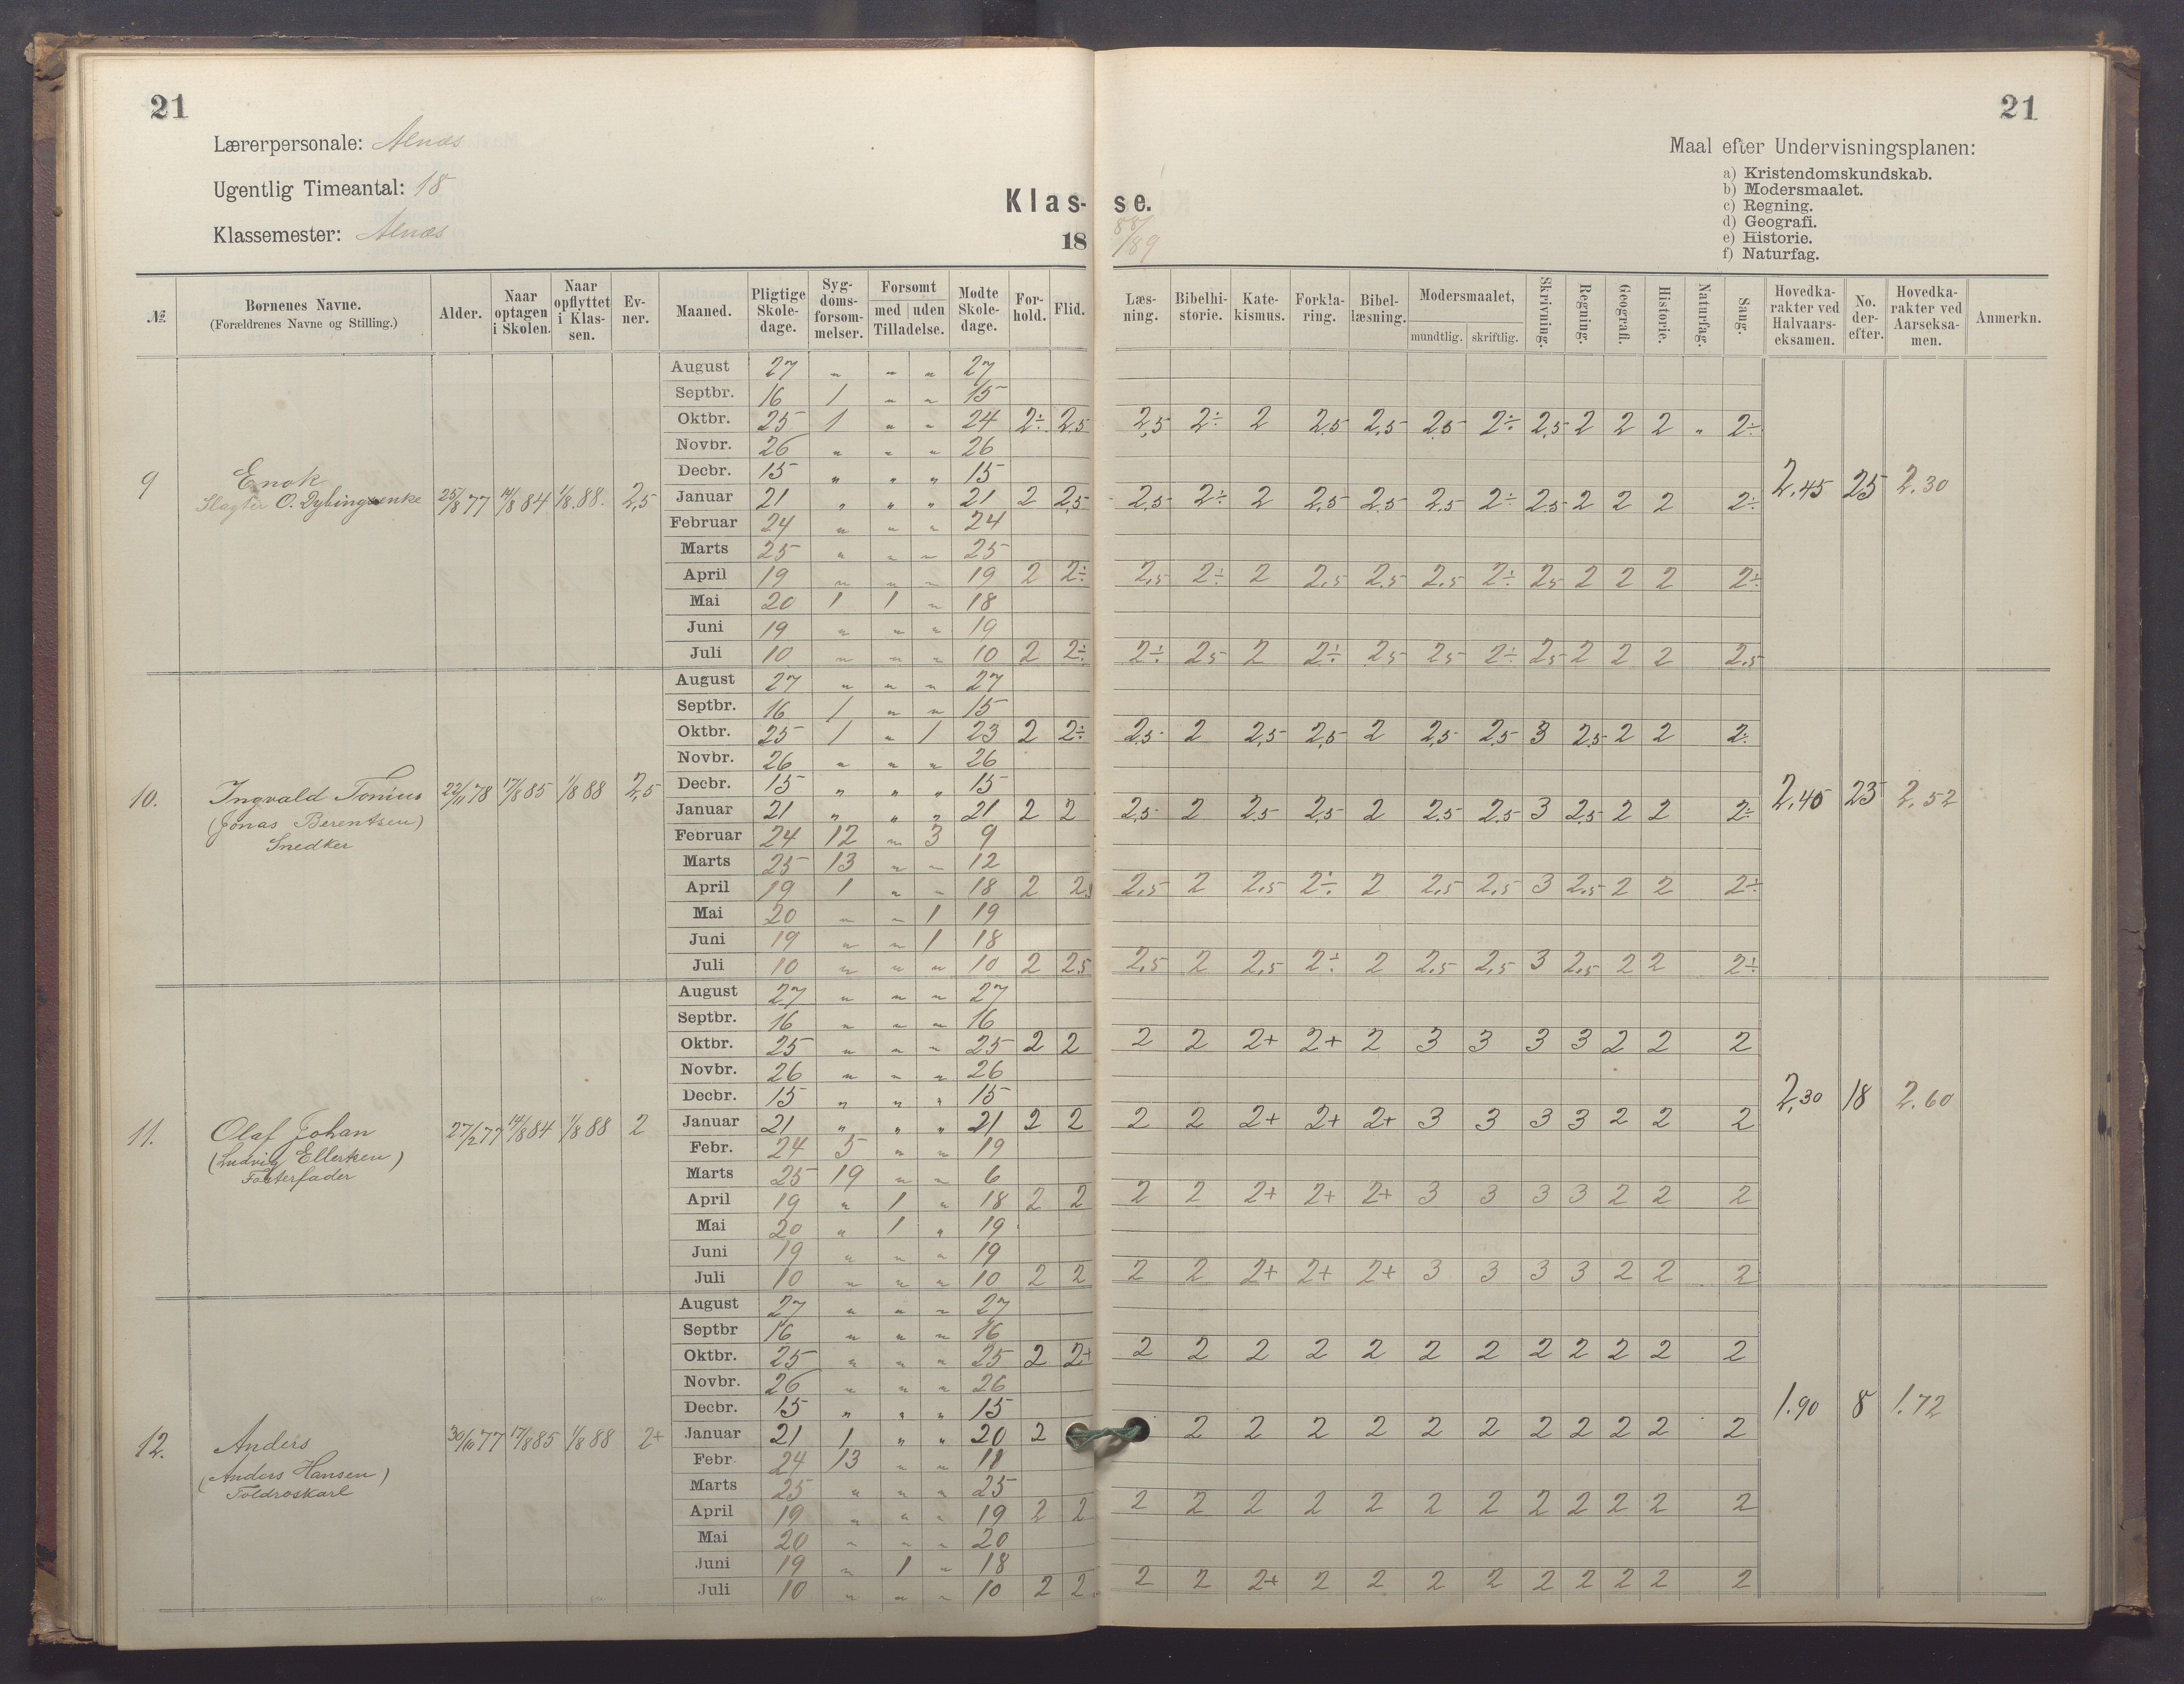 21
21
Lærerpersonale: Alnæs
Ugentlig Timeantal: 18
Klassemester: Alnæs
Klas- se.
18 88/89
Maal efter Undervisningsplanen:
a) Kristendomskundskab.
b) Modersmaalet.
c) Regning.
d) Geografi.
e) Historie.
f) Naturfag.
№ Børnenes Navne. (Forældrenes Navne og Stilling.) Alder. Naar optagen i Skolen. Naar opflyttet i Klassen. Evner. Maaned. Pligtige Skoledage. Sygdomsforsømmelser. Forsømt med | uden Tilladelse. Mødte Skoledage. Forhold. Flid. Læsning. Bibelhistorie. Katekismus. Forklaring. Bibellæsning. Modersmaalet, mundtlig. skriftlig. Skrivning. Regning. Geografi. Historie. Naturfag. Sang. Hovedkarakter ved Halvaarseksamen. No. derefter. Hovedkarakter ved Aarseksamen. Anmerkn.
9 Enok
Slagter O. Dybings enke 25/8 77 14/8 84 1/8 88. 2,5 2,45 25 2.30
August 27 " " " 27
Septbr. 16 1 " " 15
Oktbr. 25 1 " " 24 2÷ 2,5 2,5 2÷ 2 2,5 2,5 2,5 2÷ 2,5 2 2 2 " 2÷
Novbr. 26 " " " 26
Decbr. 15 " " " 15
Januar 21 " " " 21 2 2,5 2,5 2÷ 2 2,5 2,5 2,5 2÷ 2,5 2 2 2 2÷
Februar 24 " " " 24
Marts 25 " " " 25
April 19 " " " 19 2 2÷ 2,5 2÷ 2 2,5 2,5 2,5 2÷ 2,5 2 2 2 2÷
Mai 20 1 1 " 18
Juni 19 " " " 19
Juli 10 " " " 10 2 2÷ 2÷ 2,5 2 2÷ 2,5 2,5 2÷ 2,5 2 2 2 2,5
10. Ingvald Tonius
(Jonas Berentsen)
Snedker 22/11 78 17/8 85 1/8 88 2,5 2,45 23 2,52
August 27 " " " 27
Septbr. 16 1 " " 15
Oktbr. 25 1 " 1 23 2 2÷ 2,5 2 2,5 2,5 2 2,5 2,5 3 2,5 2 2 2÷
Novbr. 26 " " " 26
Decbr. 15 " " " 15
Januar 21 " " " 21 2 2 2,5 2 2,5 2,5 2 2,5 2,5 3 2,5 2 2 2÷
Februar 24 12 " 3 9
Marts 25 13 " " 12
April 19 1 " " 18 2 2,5 2 2,5 2÷ 2 2,5 2,5 3 2,5 2 2 2÷
Mai 20 " " 1 19
Juni 19 " " 1 18
Juli 10 " " " 10 2 2,5 2,5 2 2,5 2÷ 2 2,5 2,5 3 2,5 2 2 2÷
11. Olaf Johan
(Ludvig Ellertsen)
Fosterfader 27/2 77 14/8 84 1/8 88 2 2,30 18 2.60
August 27 " " " 27
Septbr. 16 " " " 16
Oktbr. 25 " " " 25 2 2 2 2 2+ 2+ 2 3 3 3 3 2 2 2
Novbr. 26 " " " 26
Decbr. 15 " " " 15
Januar 21 " " " 21 2 2 2 2 2+ 2+ 2+ 3 3 3 3 2 2 2
Febr. 24 5 " " 19
Marts 25 19 " " 6
April 19 " 1 " 18 2 2 2 2 2+ 2+ 2+ 3 3 3 3 2 2 2
Mai 20 " 1 " 19
Juni 19 " " " 19
Juli 10 " " " 10 2 2 2 2 2+ 2+ 2+ 3 3 3 3 2 2 2
12. Anders
(Anders Hansen)
Toldroskarl 30/10 77 17/8 85 1/8 88 2+ 1.90 8 1.72
August 27 " " " 27
Septbr 16 " " " 16
Oktbr. 25 " " " 25 2 2+ 2 2 2 2 2 2 2 2 2 2 2 2
Novbr. 26 " " " 26
Decbr. 15 " " " 15
Januar 21 1 " " 20 2 2 2 2 2 2 2 2 2 2 2 2
Febr. 24 13 " " 11
Marts 25 " " " 25
April 19 " " " 19 2 2 2 2 2 2 2 2 2 2 2 2 2 2
Mai 20 " " " 20
Juni 19 " 1 " 18
Juli 10 " " " 10 2 2 2 2 2+ 2 2 2 2 2 2 2 2 2